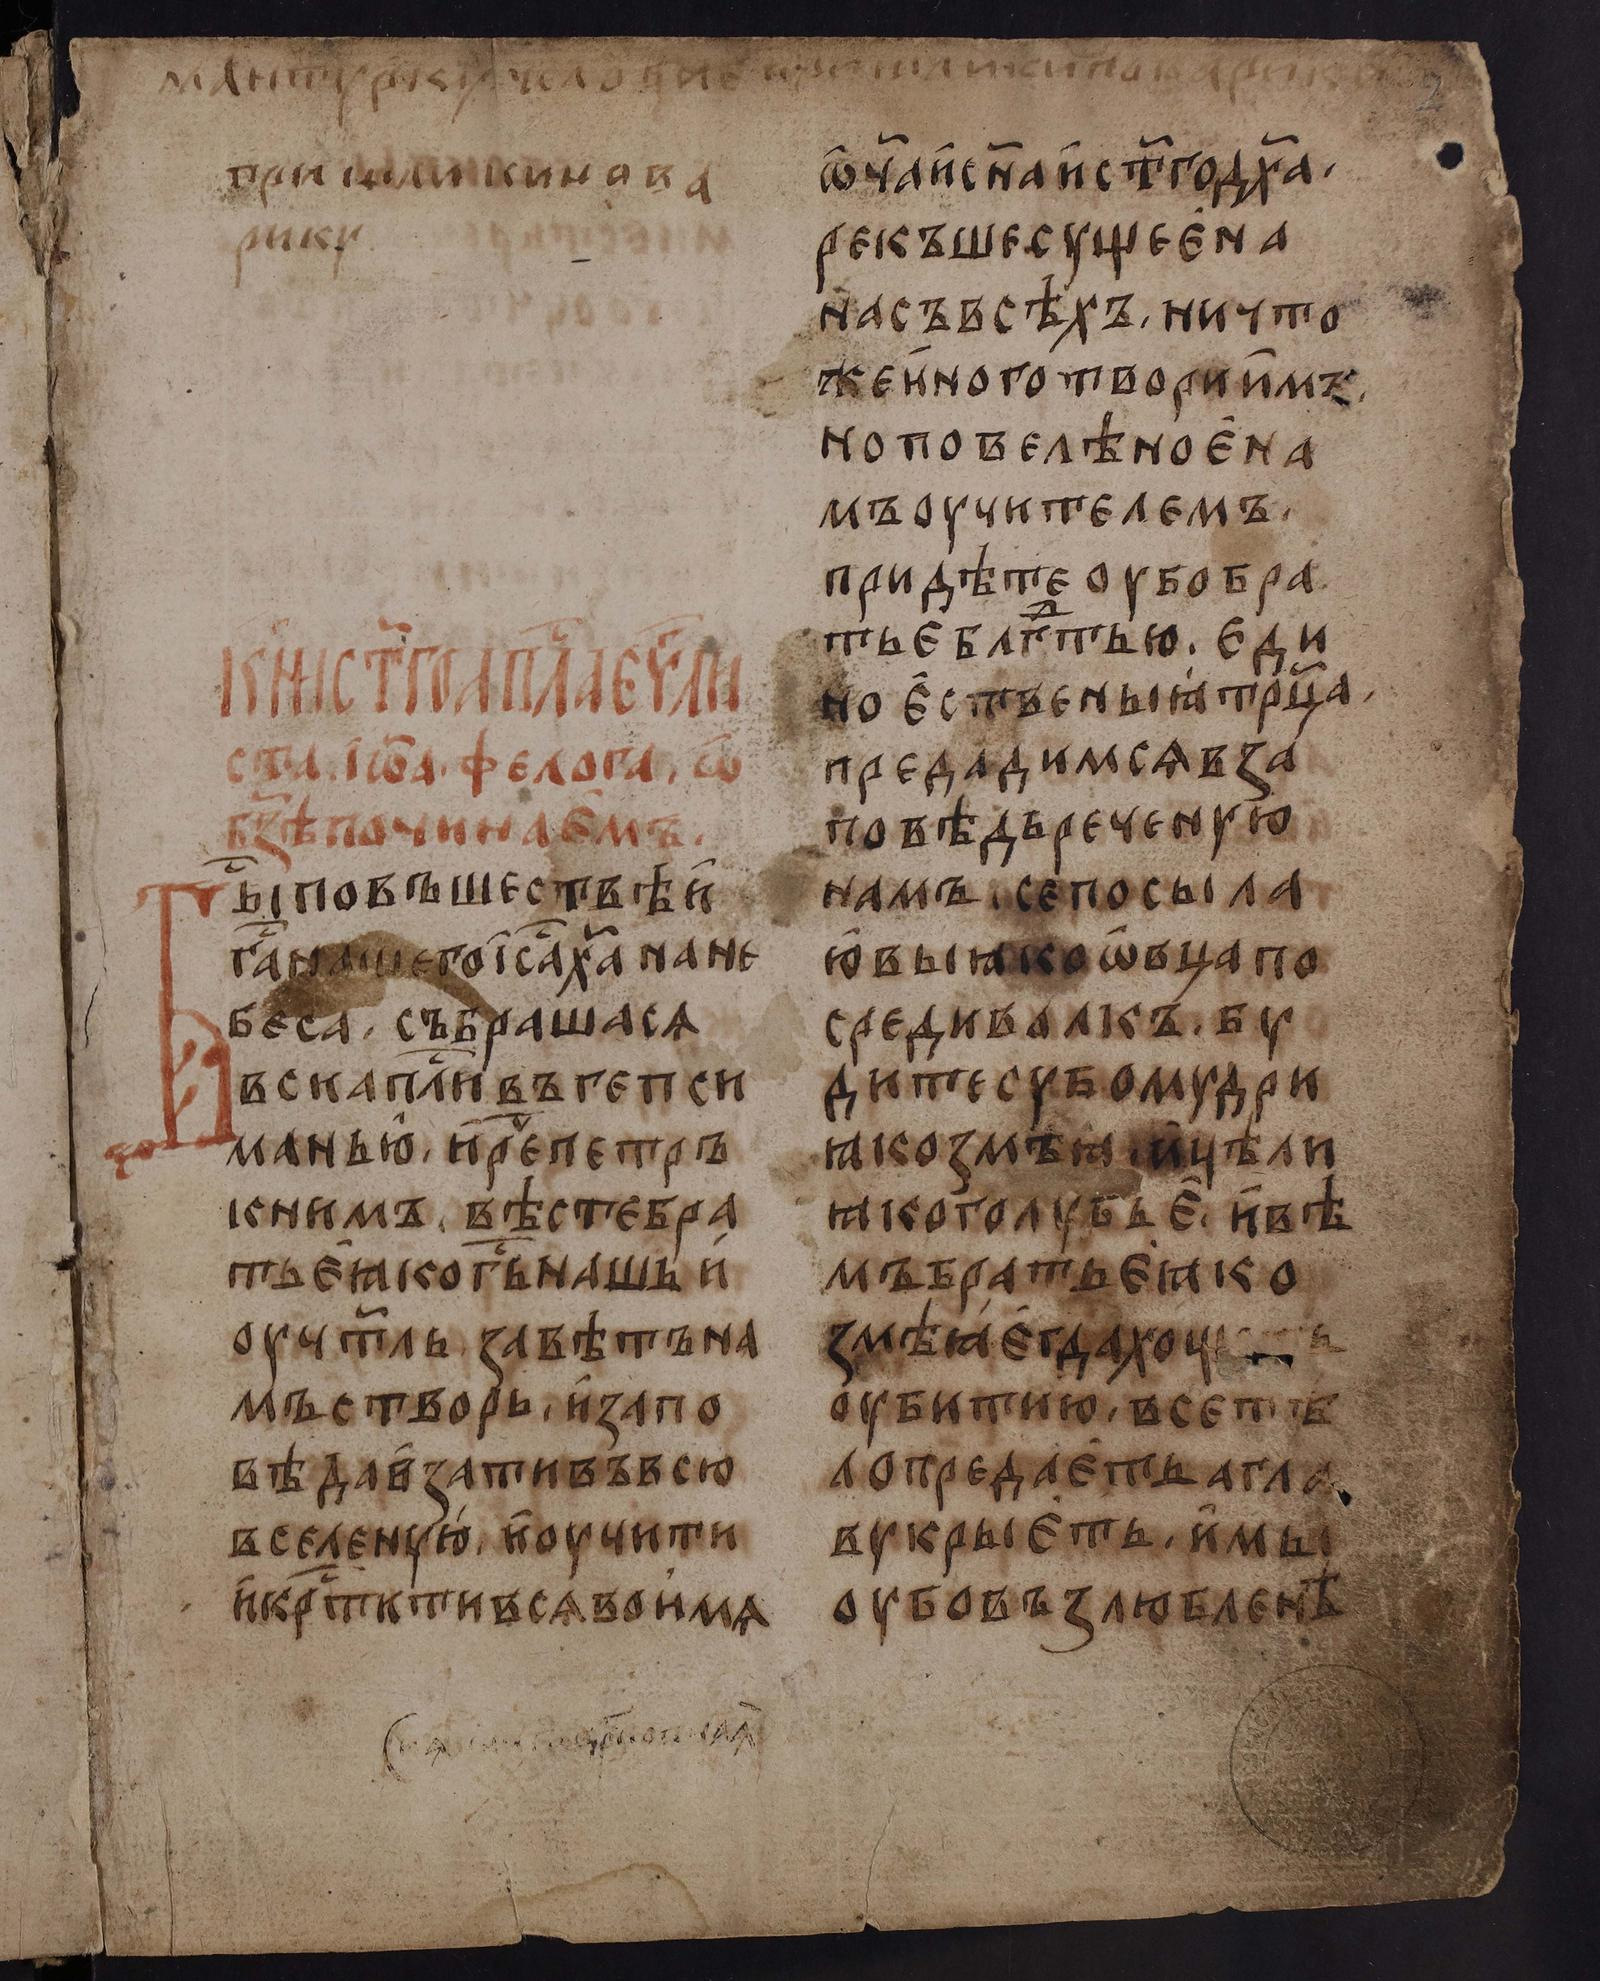 2
при шликинова
рику
кн҃и ст҃гоап҃лаеу҃ли
ста. іѡ҃а. фелога. ѿ
бз҃ѣ починаємъ.
Бы҃ повъшествѣи
га҃нашегоіс҃ах҃а нане
беса. събрашася
вси ап҃ли въгепси
маньѭ. ир҃епетръ
к нимъ. вѣстебра
тьеꙗкогь҃нашь и
оучт҃ль завѣтъна
мъстворь. изапо
вѣдаизативъвсю
вселеную. иоучити
икрт҃итивсявоимя
ѿч҃аисн҃аист҃годх҃а.
рекъшесущеена
насъвсѣхъ. ничто
жеиноготвориимъ.
ноповелѣноена
мъоучителемъ.
придѣтеоубобра
тьеблгд҃тью. еди
ноественыꙗтрц҃а.
предадимсявза
повѣдьреченую
намъ. сепосыла
ювыꙗкоѡвцапо
средиволкъ. бу
дитесубомудри
ꙗкозмѣꙗ. ицѣли
ꙗкоголубье. ивѣ
мъбратьеꙗко
змѣꙗегда
оубитию. всетѣ
лопредаеть агла
вукрыеть. имы
оубовъзлюбленѣ